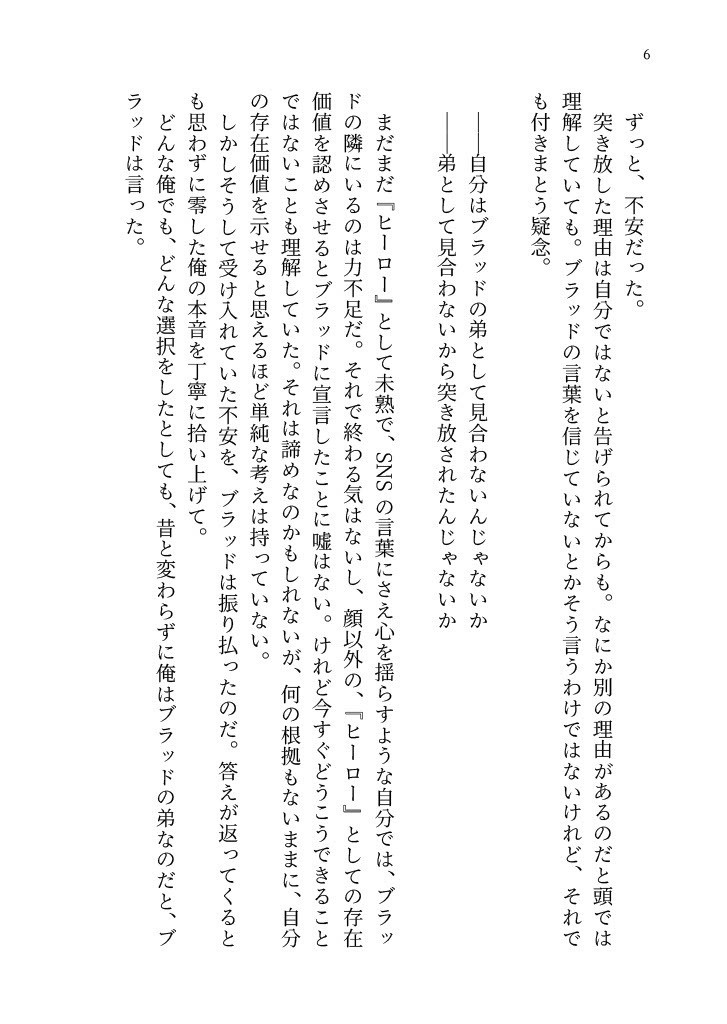 6
ずっと、不安だった。
突き放した理由は自分ではないと告げられてからも。なにか別の理由があるのだと頭では
理解していても。ブラッドの言葉を信じていないとかそう言うわけではないけれど、それで
も付きまとう疑念。
――自分はブラッドの弟として見合わないんじゃないか
――弟として見合わないから突き放されたんじゃないか
まだまだ『ヒーロー』として未熟で、SNSの言葉にさえ心を揺らすような自分では、ブラッ
ドの隣にいるのは力不足だ。それで終わる気はないし、顔以外の、『ヒーロー』としての存在
価値を認めさせるとブラッドに宣言したことに嘘はない。けれど今すぐどうこうできること
ではないことも理解していた。それは諦めなのかもしれないが、何の根拠もないままに、自分
の存在価値を示せると思えるほど単純な考えは持っていない。
しかしそうして受け入れていた不安を、ブラッドは振り払ったのだ。答えが返ってくると
も思わずに零した俺の本音を丁寧に拾い上げて。
どんな俺でも、どんな選択をしたとしても、昔と変わらずに俺はブラッドの弟なのだと、ブ
ラッドは言った。